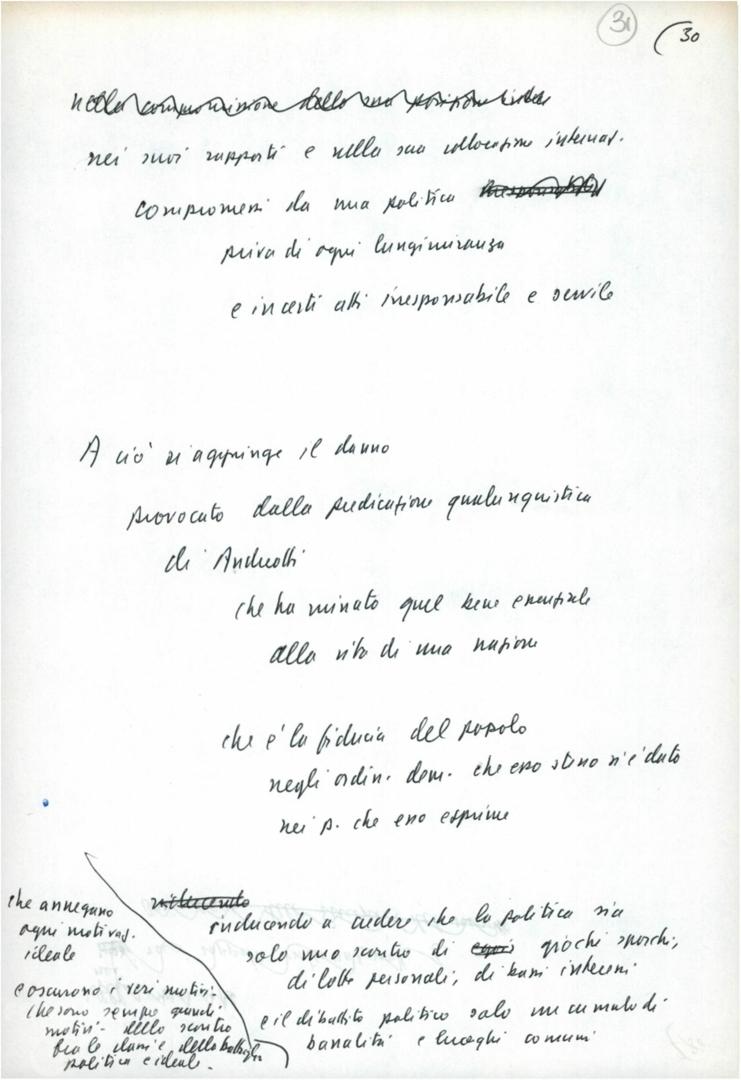 31
(30
nei suoi rapporti e nella sua collocazione internaz.
compromessi da una politica
priva di ogni lungimiranza
e in certi atti irresponsabile e servile
A ciò si aggiunge il danno
provocato dalla predicazione qualunquistica
di Andreotti
che ha minato quel bene essenziale
alla vita di una nazione
che è la fiducia del popolo
negli ordin. dem. che esso stesso si è dato
nei p. che esso esprime
inducendo a credere che la politica sia
solo uno scontro di giochi sporchi,
di lotte personali, di bassi interessi
e il dibattito politico solo un cumulo di
banalità e luoghi comuni
che annegano
ogni motivaz.
ideale
e oscurano i veri motivi
che sono sempre grandi
motivi - dello scontro
fra le classi e della battaglia
politica e ideale.